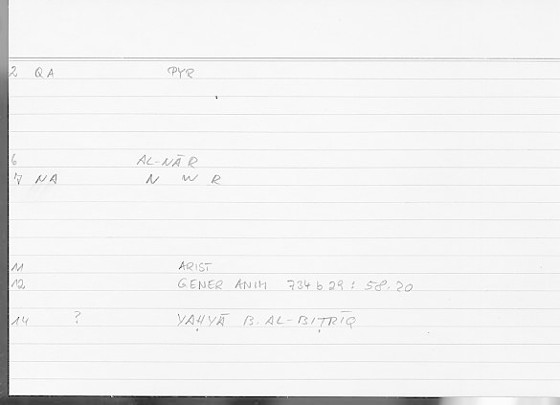 2 QA PYR
6 AL-NĀR
7 NA N W R
11 ARIST
12 GENER ANIM 734 b 29 : 58.20
14 ? YAḤYĀ B. AL-BIṬRĪQ